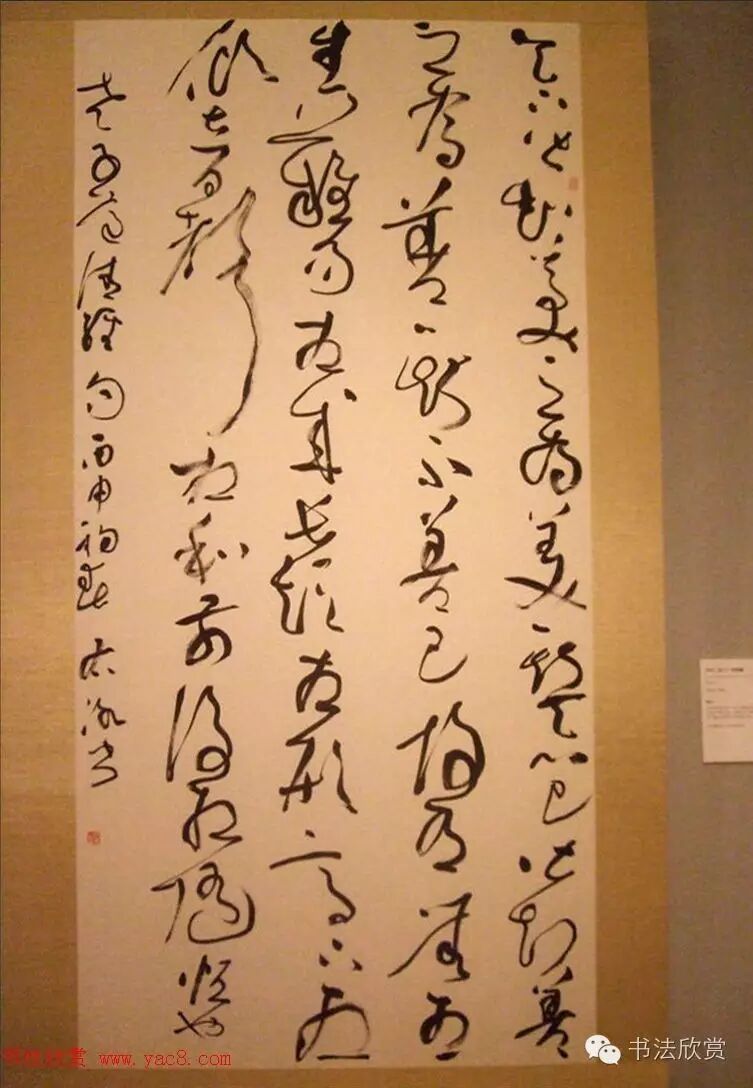 天下皆知美之為美斯惡已皆知善
之為善斯不善已故有無相
生難易相成長短相形高下相
傾音聲相和前後相隨恒也
老子道德經句丙申初春書
书法欣赏 www.yac8.com
书法欣赏